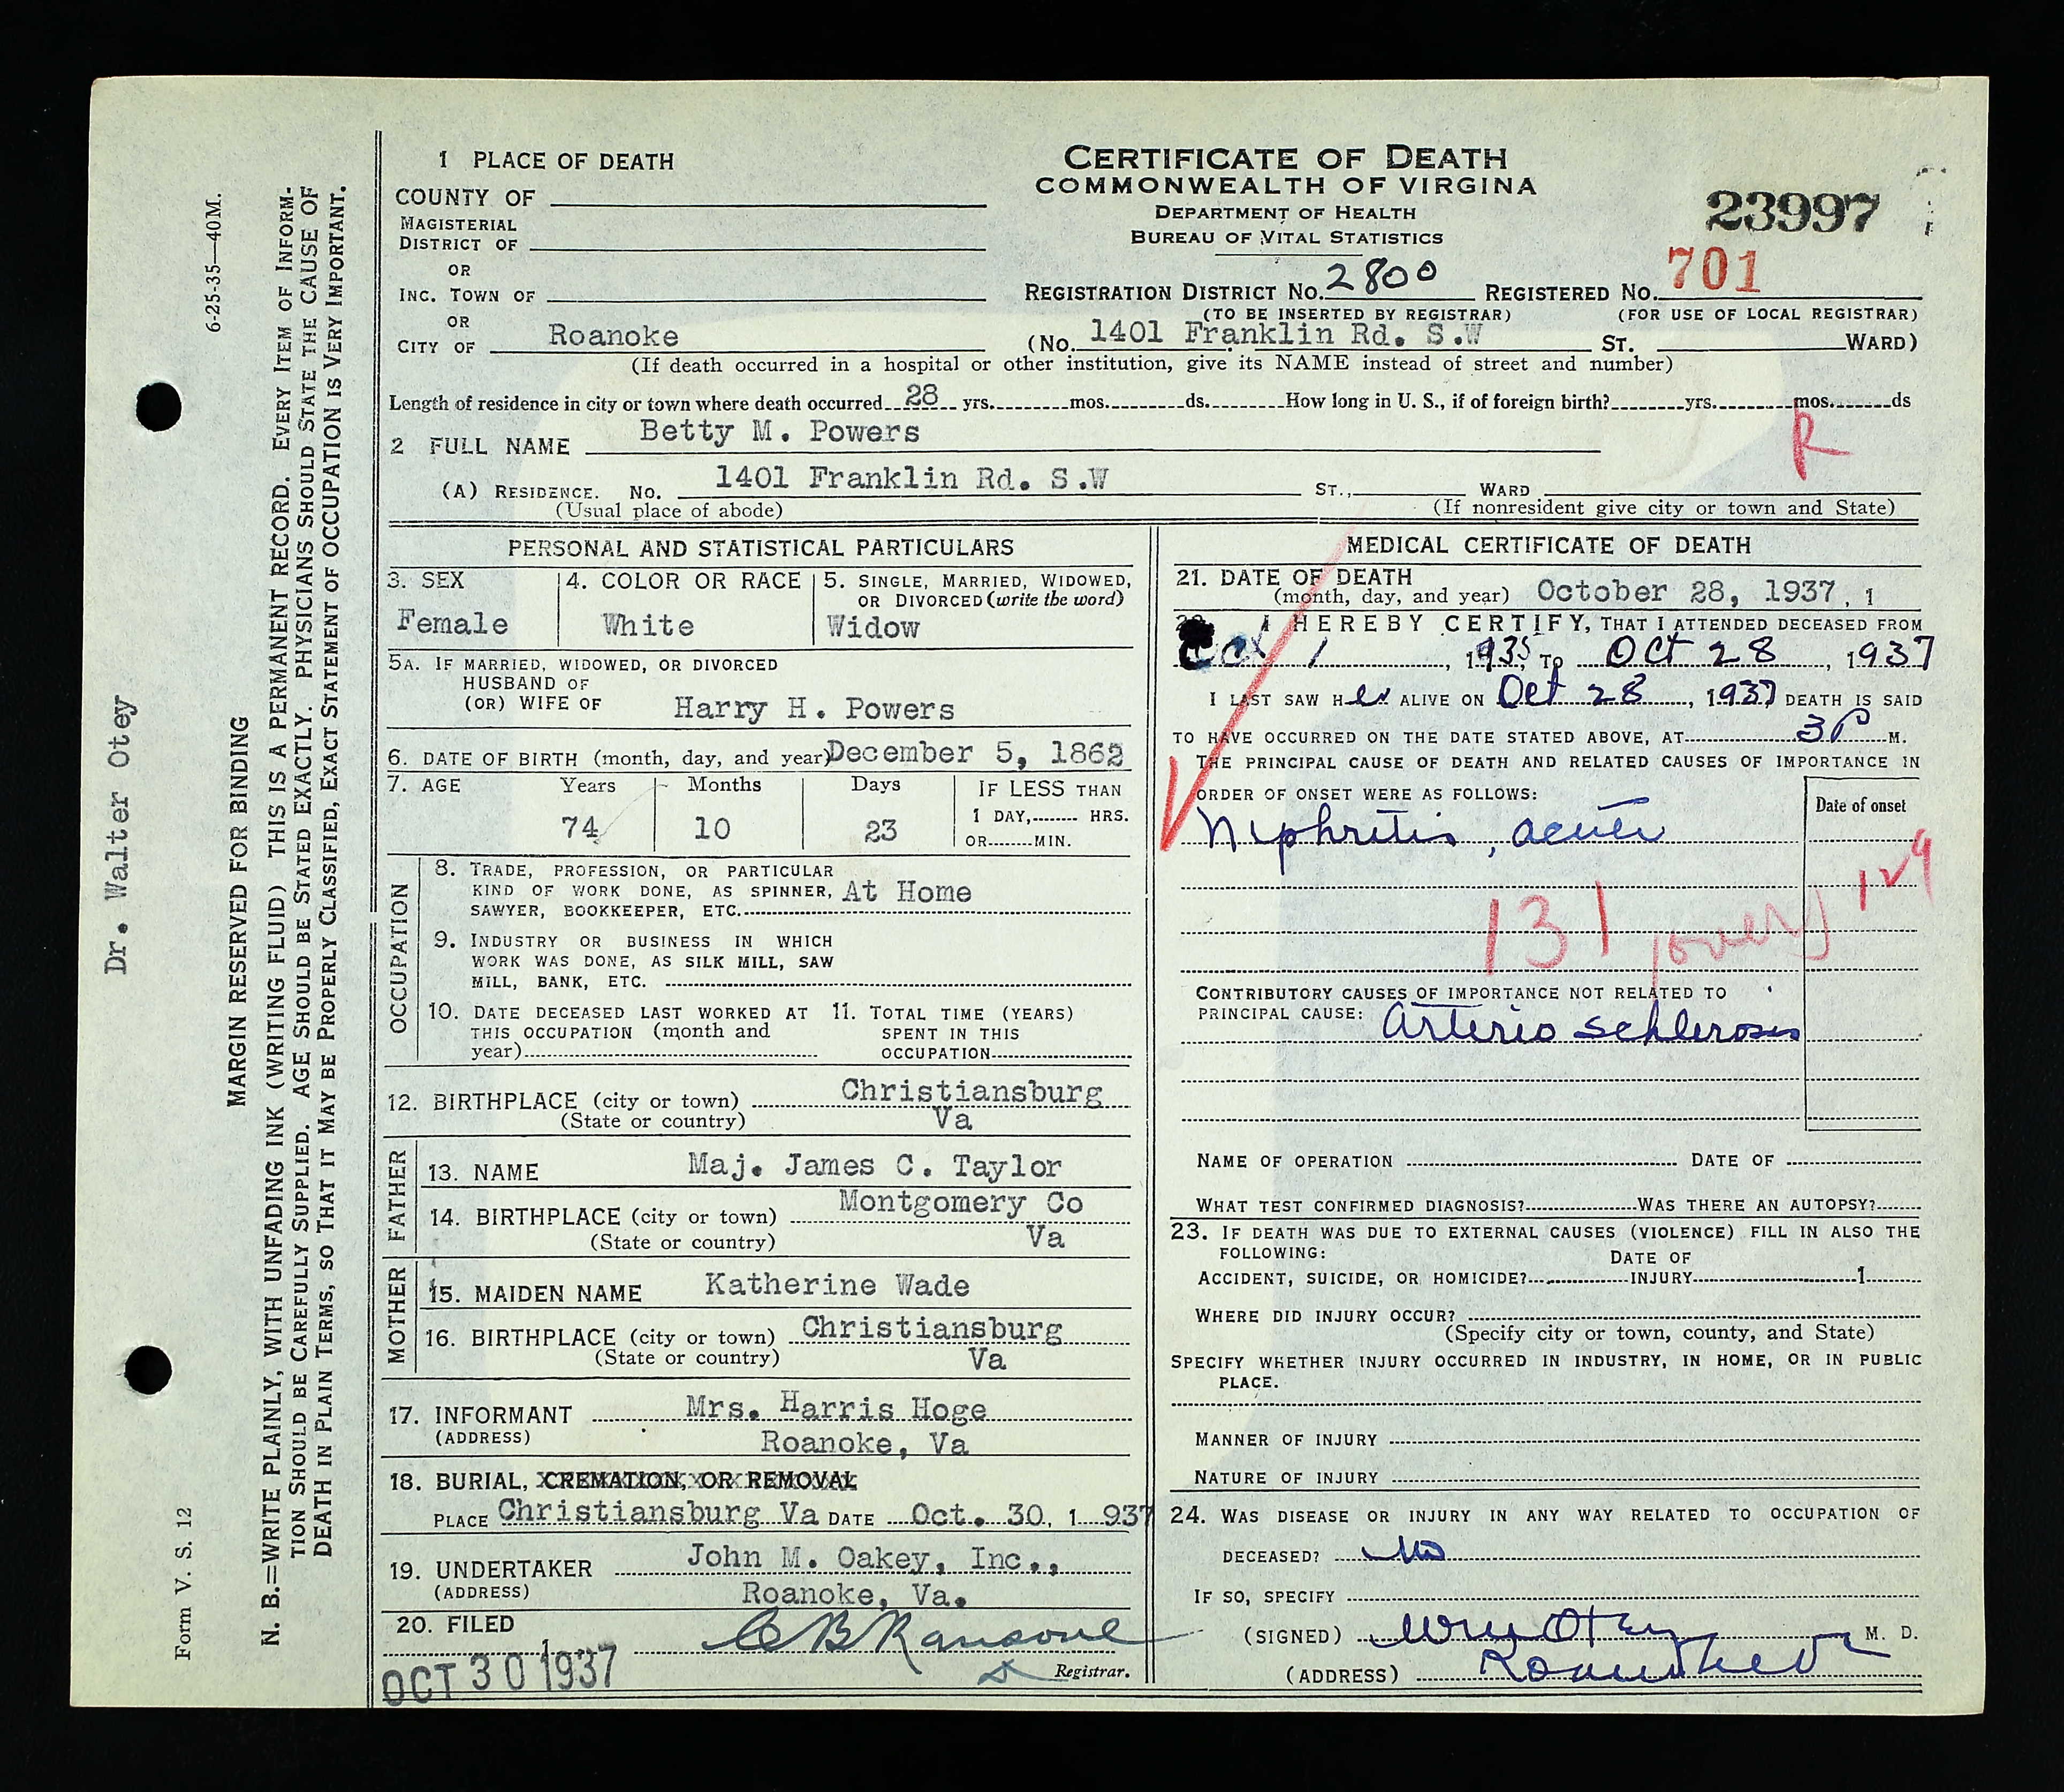 1 PLACE OF DEATH
COUNTY OF
MAGISTERIAL
DISTRICT OF
OR
INC. TOWN OF
OR
CITY OF Roanoke
CERTIFICATE OF DEATH
COMMONWEALTH OF VIRGINA
DEPARTMENT OF HEALTH
BUREAU OF VITAL STATISTICS
23997
REGISTRATION DISTRICT NO. 2800 REGISTERED NO. 701
(TO BE INSERTED BY REGISTRAR) (FOR USE OF LOCAL REGISTRAR)
(No. 1401 Franklin Rd. S.W ST. WARD)
(If death occurred in a hospital or other institution, give its NAME instead of street and number)
Length of residence in city or town where death occurred 28 yrs. mos. ds. How long in U. S., if of foreign birth? yrs. mos. ds
2 FULL NAME Betty M. Powers
R
(A) RESIDENCE. NO. 1401 Franklin Rd. S.W ST., WARD
(Usual place of abode) (If nonresident give city or town and State)
PERSONAL AND STATISTICAL PARTICULARS
3. SEX 4. COLOR OR RACE 5. SINGLE, MARRIED, WIDOWED,
OR DIVORCED (write the word)
Female White Widow
5A. IF MARRIED, WIDOWED, OR DIVORCED
HUSBAND OF
(OR) WIFE OF Harry H. Powers
6. DATE OF BIRTH (month, day, and year) December 5, 1862
7. AGE Years Months Days IF LESS THAN
1 DAY, HRS.
74 10 23
OR MIN.
OCCUPATION
8. TRADE, PROFESSION, OR PARTICULAR
KIND OF WORK DONE, AS SPINNER, At Home
SAWYER, BOOKKEEPER, ETC.
9. INDUSTRY OR BUSINESS IN WHICH
WORK WAS DONE, AS SILK MILL, SAW
MILL, BANK, ETC.
10. DATE DECEASED LAST WORKED AT 11. TOTAL TIME (YEARS)
THIS OCCUPATION (month and SPENT IN THIS
year) OCCUPATION
12. BIRTHPLACE (city or town) Christiansburg
(State or country) Va
FATHER
13. NAME Maj. James C. Taylor
14. BIRTHPLACE (city or town) Montgomery Co
(State or country) Va
MOTHER
15. MAIDEN NAME Katherine Wade
16. BIRTHPLACE (city or town) Christiansburg
(State or country) Va
17. INFORMANT Mrs. Harris Hoge
(ADDRESS) Roanoke, Va
18. BURIAL, CREMATION, OR REMOVAL
PLACE Christiansburg Va DATE Oct. 30, 1 937
19. UNDERTAKER John M. Oakey, Inc.,
(ADDRESS) Roanoke, Va.
20. FILED
OCT 30 1937
C B Ransone
Registrar.
MEDICAL CERTIFICATE OF DEATH
21. DATE OF DEATH
(month, day, and year) October 28, 1937, 1
22. I HEREBY CERTIFY, THAT I ATTENDED DECEASED FROM
Oct 1, 1935, TO Oct 28, 1937
I LAST SAW HER ALIVE ON Oct 28, 1937 DEATH IS SAID
TO HAVE OCCURRED ON THE DATE STATED ABOVE, AT 3P M.
THE PRINCIPAL CAUSE OF DEATH AND RELATED CAUSES OF IMPORTANCE IN
ORDER OF ONSET WERE AS FOLLOWS:
Date of onset
Nephritis, acute
131
CONTRIBUTORY CAUSES OF IMPORTANCE NOT RELATED TO
PRINCIPAL CAUSE: Arterio schlerosis
NAME OF OPERATION DATE OF
WHAT TEST CONFIRMED DIAGNOSIS? WAS THERE AN AUTOPSY?
23. IF DEATH WAS DUE TO EXTERNAL CAUSES (VIOLENCE) FILL IN ALSO THE
FOLLOWING: DATE OF
ACCIDENT, SUICIDE, OR HOMICIDE? INJURY 1
WHERE DID INJURY OCCUR?
(Specify city or town, county, and State)
SPECIFY WHETHER INJURY OCCURRED IN INDUSTRY, IN HOME, OR IN PUBLIC
PLACE.
MANNER OF INJURY
NATURE OF INJURY
24. WAS DISEASE OR INJURY IN ANY WAY RELATED TO OCCUPATION OF
DECEASED? No
IF SO, SPECIFY
(SIGNED) Wm Otey M. D.
(ADDRESS) Roanoke Va
Dr. Walter Otey
6-25-35—40M.
MARGIN RESERVED FOR BINDING
N. B.=WRITE PLAINLY, WITH UNFADING INK (WRITING FLUID) THIS IS A PERMANENT RECORD. EVERY ITEM OF INFORM-
TION SHOULD BE CAREFULLY SUPPLIED. AGE SHOULD BE STATED EXACTLY. PHYSICIANS SHOULD STATE THE CAUSE OF
DEATH IN PLAIN TERMS, SO THAT IT MAY BE PROPERLY CLASSIFIED, EXACT STATEMENT OF OCCUPATION IS VERY IMPORTANT.
Form V. S. 12